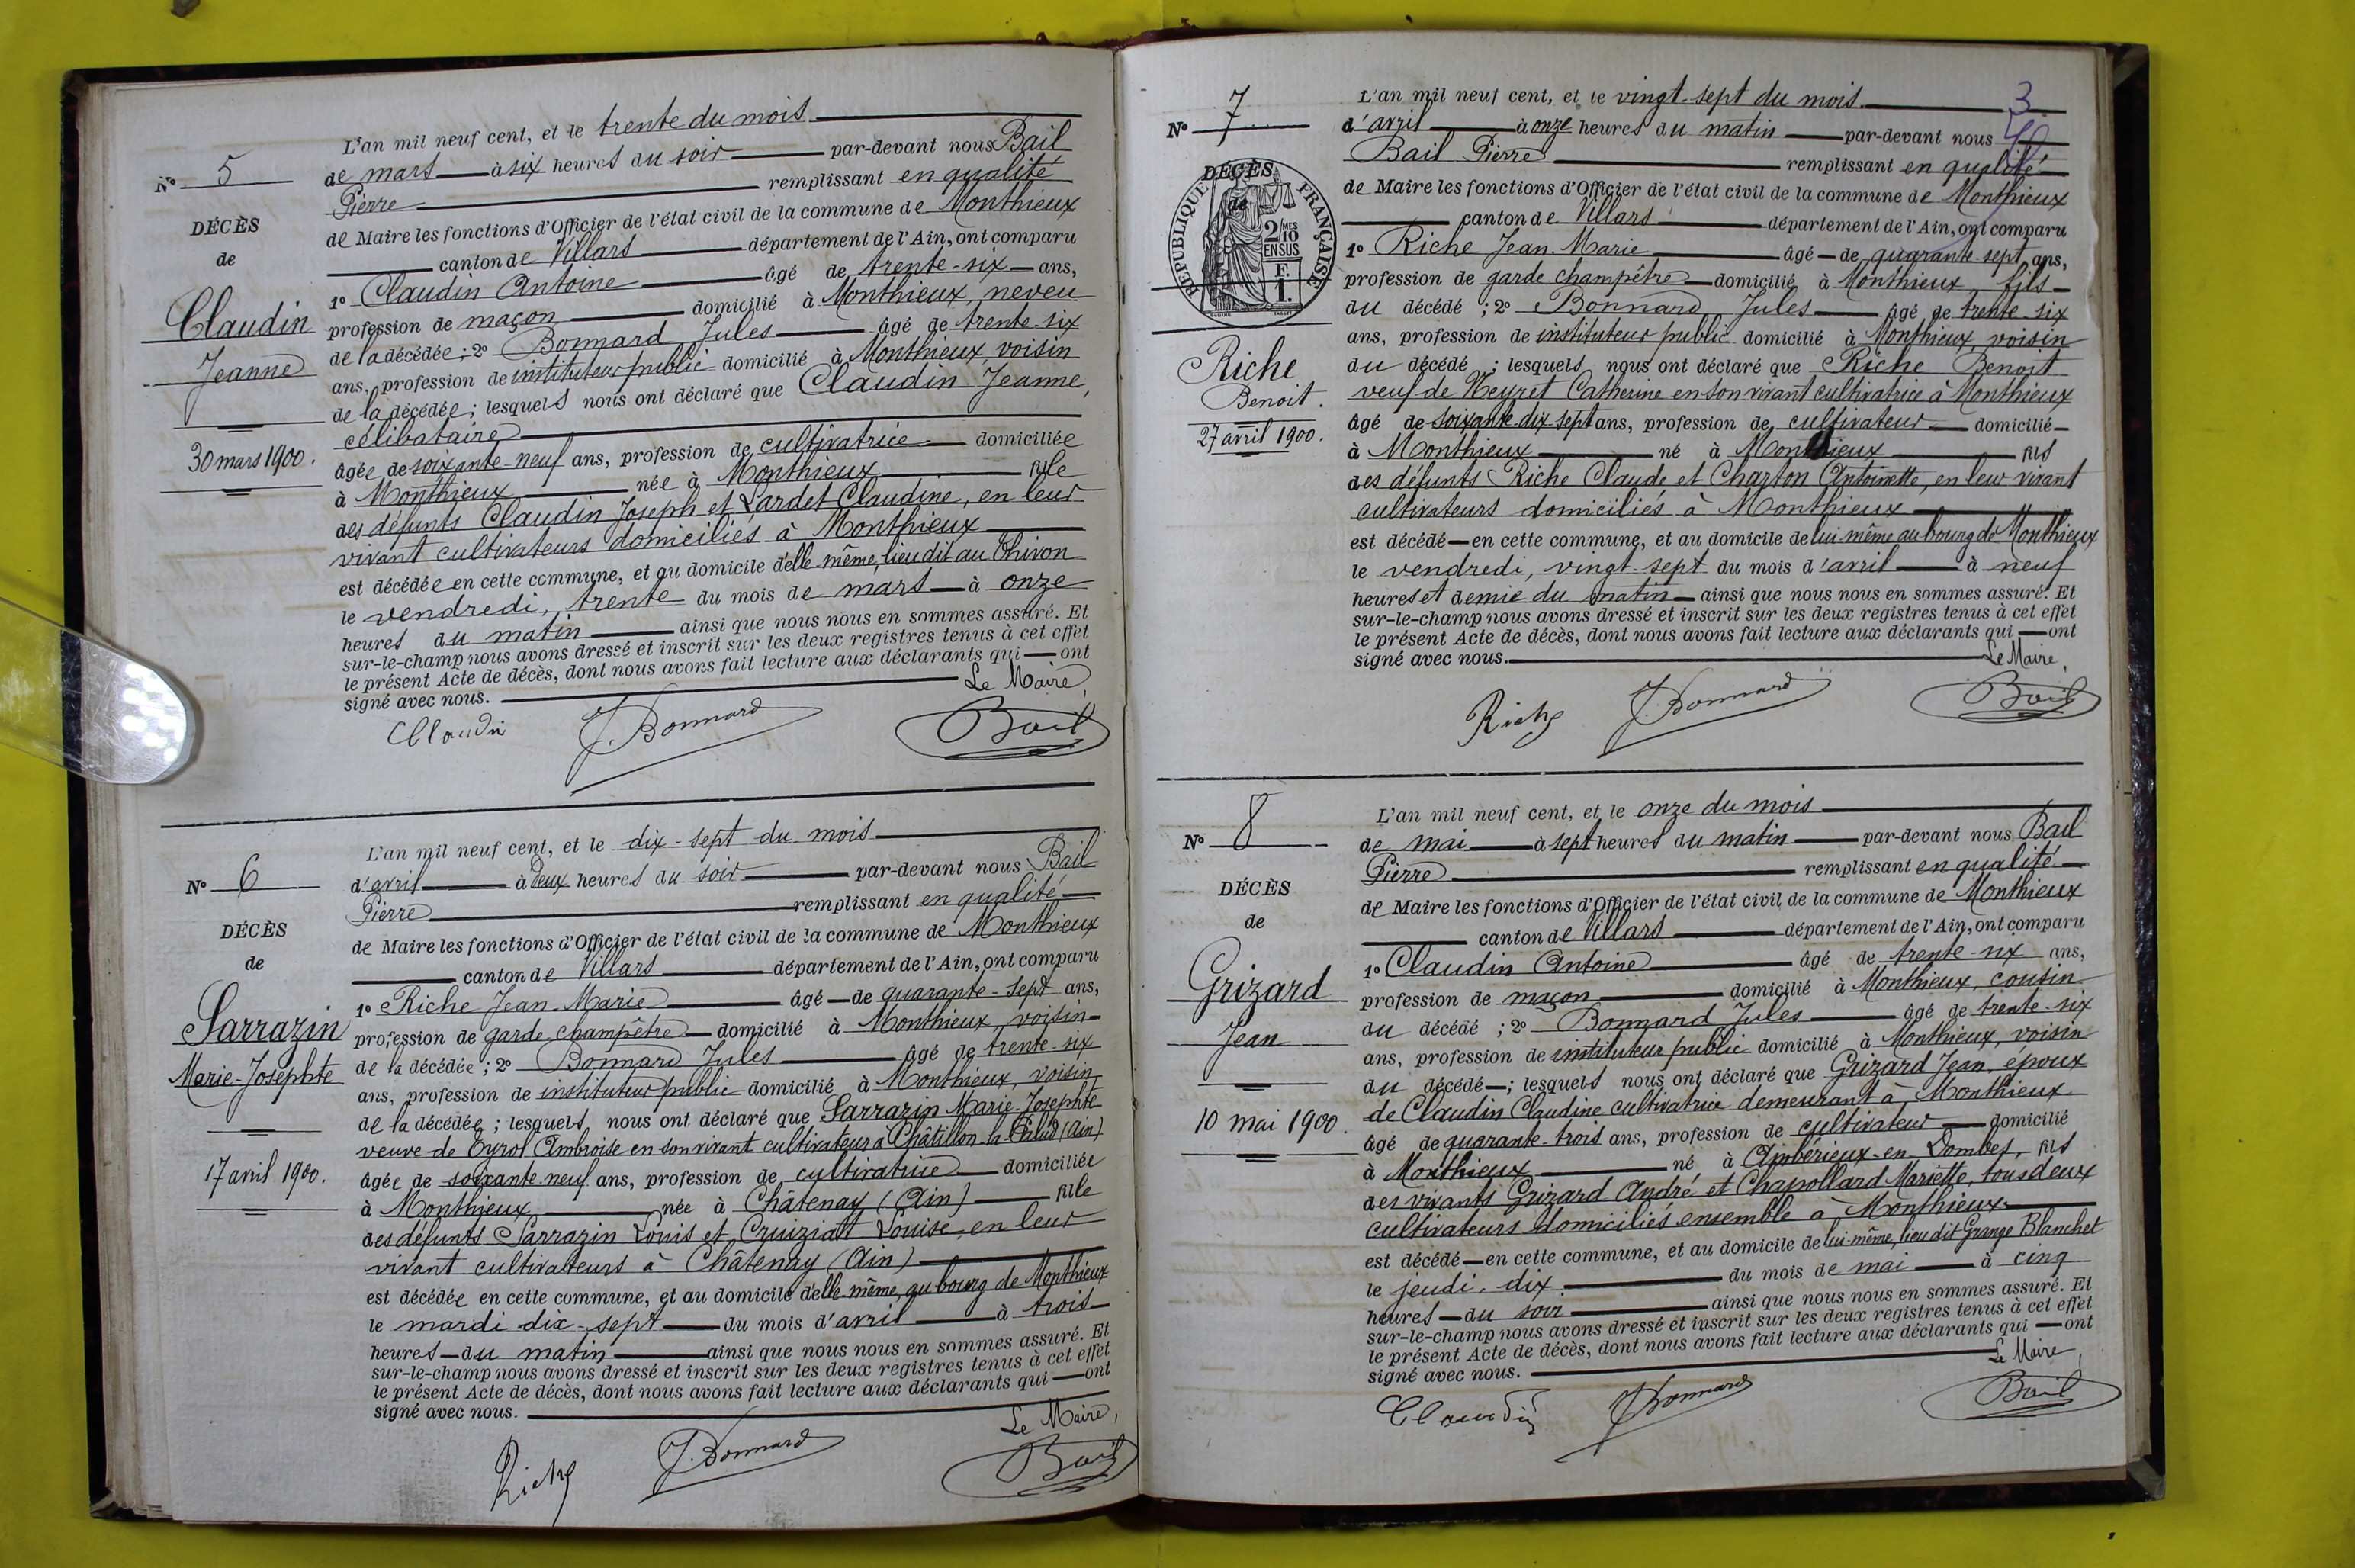 N° 5
DÉCÈS
de
Claudin
Jeanne
30 mars 1900.
L'an mil neuf cent, et le trente du mois
de mars à six heures du soir par-devant nous Bail
Pierre remplissant en qualité
de Maire les fonctions d'Officier de l'état civil de la commune de Monthieux
canton de Villars département de l'Ain, ont comparu
1° Claudin Antoine âgé de trente-six ans,
profession de maçon domicilié à Monthieux, neveu
de la décédée; 2° Bonnard Jules âgé de trente-six
ans, profession de instituteur public domicilié à Monthieux, voisin
de la décédée; lesquels nous ont déclaré que Claudin Jeanne,
célibataire
âgée de soixante-neuf ans, profession de cultivatrice domiciliée
à Monthieux née à Monthieux fille
des défunts Claudin Joseph et Lardet Claudine, en leur
vivant cultivateurs domiciliés à Monthieux
est décédée en cette commune, et au domicile d'elle-même, lieu dit au Chivon
le vendredi, trente du mois de mars à onze
heures du matin ainsi que nous nous en sommes assuré. Et
sur-le-champ nous avons dressé et inscrit sur les deux registres tenus à cet effet
le présent Acte de décès, dont nous avons fait lecture aux déclarants qui ont
signé avec nous. Le Maire,
Claudin J. Bonnard Bail
N° 6
DÉCÈS
de
Sarrazin
Marie-Josephte
17 avril 1900.
L'an mil neuf cent, et le dix-sept du mois
d'avril à deux heures du soir par-devant nous Bail
Pierre remplissant en qualité
de Maire les fonctions d'Officier de l'état civil de la commune de Monthieux
canton de Villars département de l'Ain, ont comparu
1° Riche Jean-Marie âgé de quarante-sept ans,
profession de garde champêtre domicilié à Monthieux, voisin
de la décédée; 2° Bonnard Jules âgé de trente-six
ans, profession de instituteur public domicilié à Monthieux, voisin
de la décédée; lesquels nous ont déclaré que Sarrazin Marie-Josephte
veuve de Eyrol Ambroise en son vivant cultivateur à Châtillon-la-Palud (Ain)
âgée de soixante-neuf ans, profession de cultivatrice domiciliée
à Monthieux née à Châtenay (Ain) fille
des défunts Sarrazin Louis et Cruiziat Louise, en leur
vivant cultivateurs à Châtenay (Ain)
est décédée en cette commune, et au domicile d'elle-même, au bourg de Monthieux
le mardi dix-sept du mois d'avril à trois
heures du matin ainsi que nous nous en sommes assuré. Et
sur-le-champ nous avons dressé et inscrit sur les deux registres tenus à cet effet
le présent Acte de décès, dont nous avons fait lecture aux déclarants qui ont
signé avec nous. Le Maire,
Riche J. Bonnard Bail
3
N° 7
DÉCÈS
de
RÉPUBLIQUE FRANÇAISE
2/10 MES
EN SUS
F.
1.
Riche
Benoit.
27 avril 1900.
L'an mil neuf cent, et le vingt-sept du mois
d'avril à onze heures du matin par-devant nous
Bail Pierre remplissant en qualité
de Maire les fonctions d'Officier de l'état civil de la commune de Monthieux
canton de Villars département de l'Ain, ont comparu
1° Riche Jean-Marie âgé de quarante-sept ans,
profession de garde champêtre domicilié à Monthieux, fils
du décédé; 2° Bonnard Jules âgé de trente-six
ans, profession de instituteur public domicilié à Monthieux, voisin
du décédé; lesquels nous ont déclaré que Riche Benoit
veuf de Neyret Catherine en son vivant cultivatrice à Monthieux
âgé de soixante-dix-sept ans, profession de cultivateur domicilié
à Monthieux né à Monthieux fils
des défunts Riche Claude et Charton Antoinette, en leur vivant
cultivateurs domiciliés à Monthieux
est décédé en cette commune, et au domicile de lui-même au bourg de Monthieux
le vendredi, vingt-sept du mois d'avril à neuf
heures et demie du matin ainsi que nous nous en sommes assuré. Et
sur-le-champ nous avons dressé et inscrit sur les deux registres tenus à cet effet
le présent Acte de décès, dont nous avons fait lecture aux déclarants qui ont
signé avec nous. Le Maire,
Riche J. Bonnard Bail
N° 8
DÉCÈS
de
Grizard
Jean
10 mai 1900.
L'an mil neuf cent, et le onze du mois
de mai à sept heures du matin par-devant nous Bail
Pierre remplissant en qualité
de Maire les fonctions d'Officier de l'état civil de la commune de Monthieux
canton de Villars département de l'Ain, ont comparu
1° Claudin Antoine âgé de trente-six ans,
profession de maçon domicilié à Monthieux, cousin
du décédé; 2° Bonnard Jules âgé de trente-six
ans, profession de instituteur public domicilié à Monthieux, voisin
du décédé; lesquels nous ont déclaré que Grizard Jean, époux
de Claudin Claudine cultivatrice demeurant à Monthieux
âgé de quarante-trois ans, profession de cultivateur domicilié
à Monthieux né à Ambérieux-en-Dombes, fils
des vivants Grizard André et Chapollard Mariette, tous deux
cultivateurs domiciliés ensemble à Monthieux
est décédé en cette commune, et au domicile de lui-même, lieu dit Grange Blanchet
le jeudi, dix du mois de mai à cinq
heures du soir ainsi que nous nous en sommes assuré. Et
sur-le-champ nous avons dressé et inscrit sur les deux registres tenus à cet effet
le présent Acte de décès, dont nous avons fait lecture aux déclarants qui ont
signé avec nous. Le Maire,
Claudin J Bonnard Bail